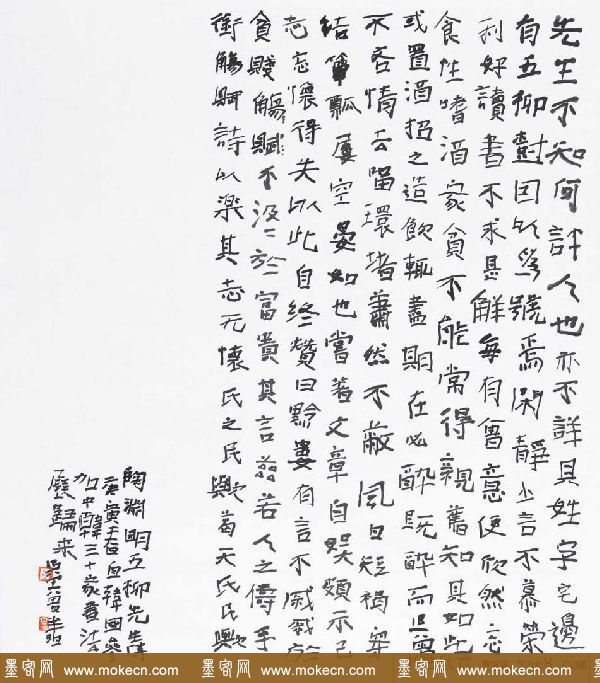 先生不知何許人也亦不詳其姓字宅邊
有五柳樹因以爲號焉閑靜少言不慕榮
利好讀書不求甚解每有會意便欣然忘
食性嗜酒家貧不能常得親舊知其如此
或置酒招之造飲輒盡期在必醉既醉而退曾
不吝情去留環堵蕭然不蔽風日短褐穿
結簞瓢屢空晏如也嘗著文章自娛頗示己
志忘懷得失以此自終贊曰黔婁有言不戚戚於
貧賤觴賦不汲汲於富貴其言茲若人之儔乎
銜觴賦詩以樂其志无懷氏之民歟葛天氏民歟
陶淵明五柳先生傳
庚寅在韓國參
加中韓三十家書法
展歸來
墨客网 www.mokecn.com 墨客网 www.mokecn.com 墨客网 www.mokecn.com 墨客网 www.mokecn.com